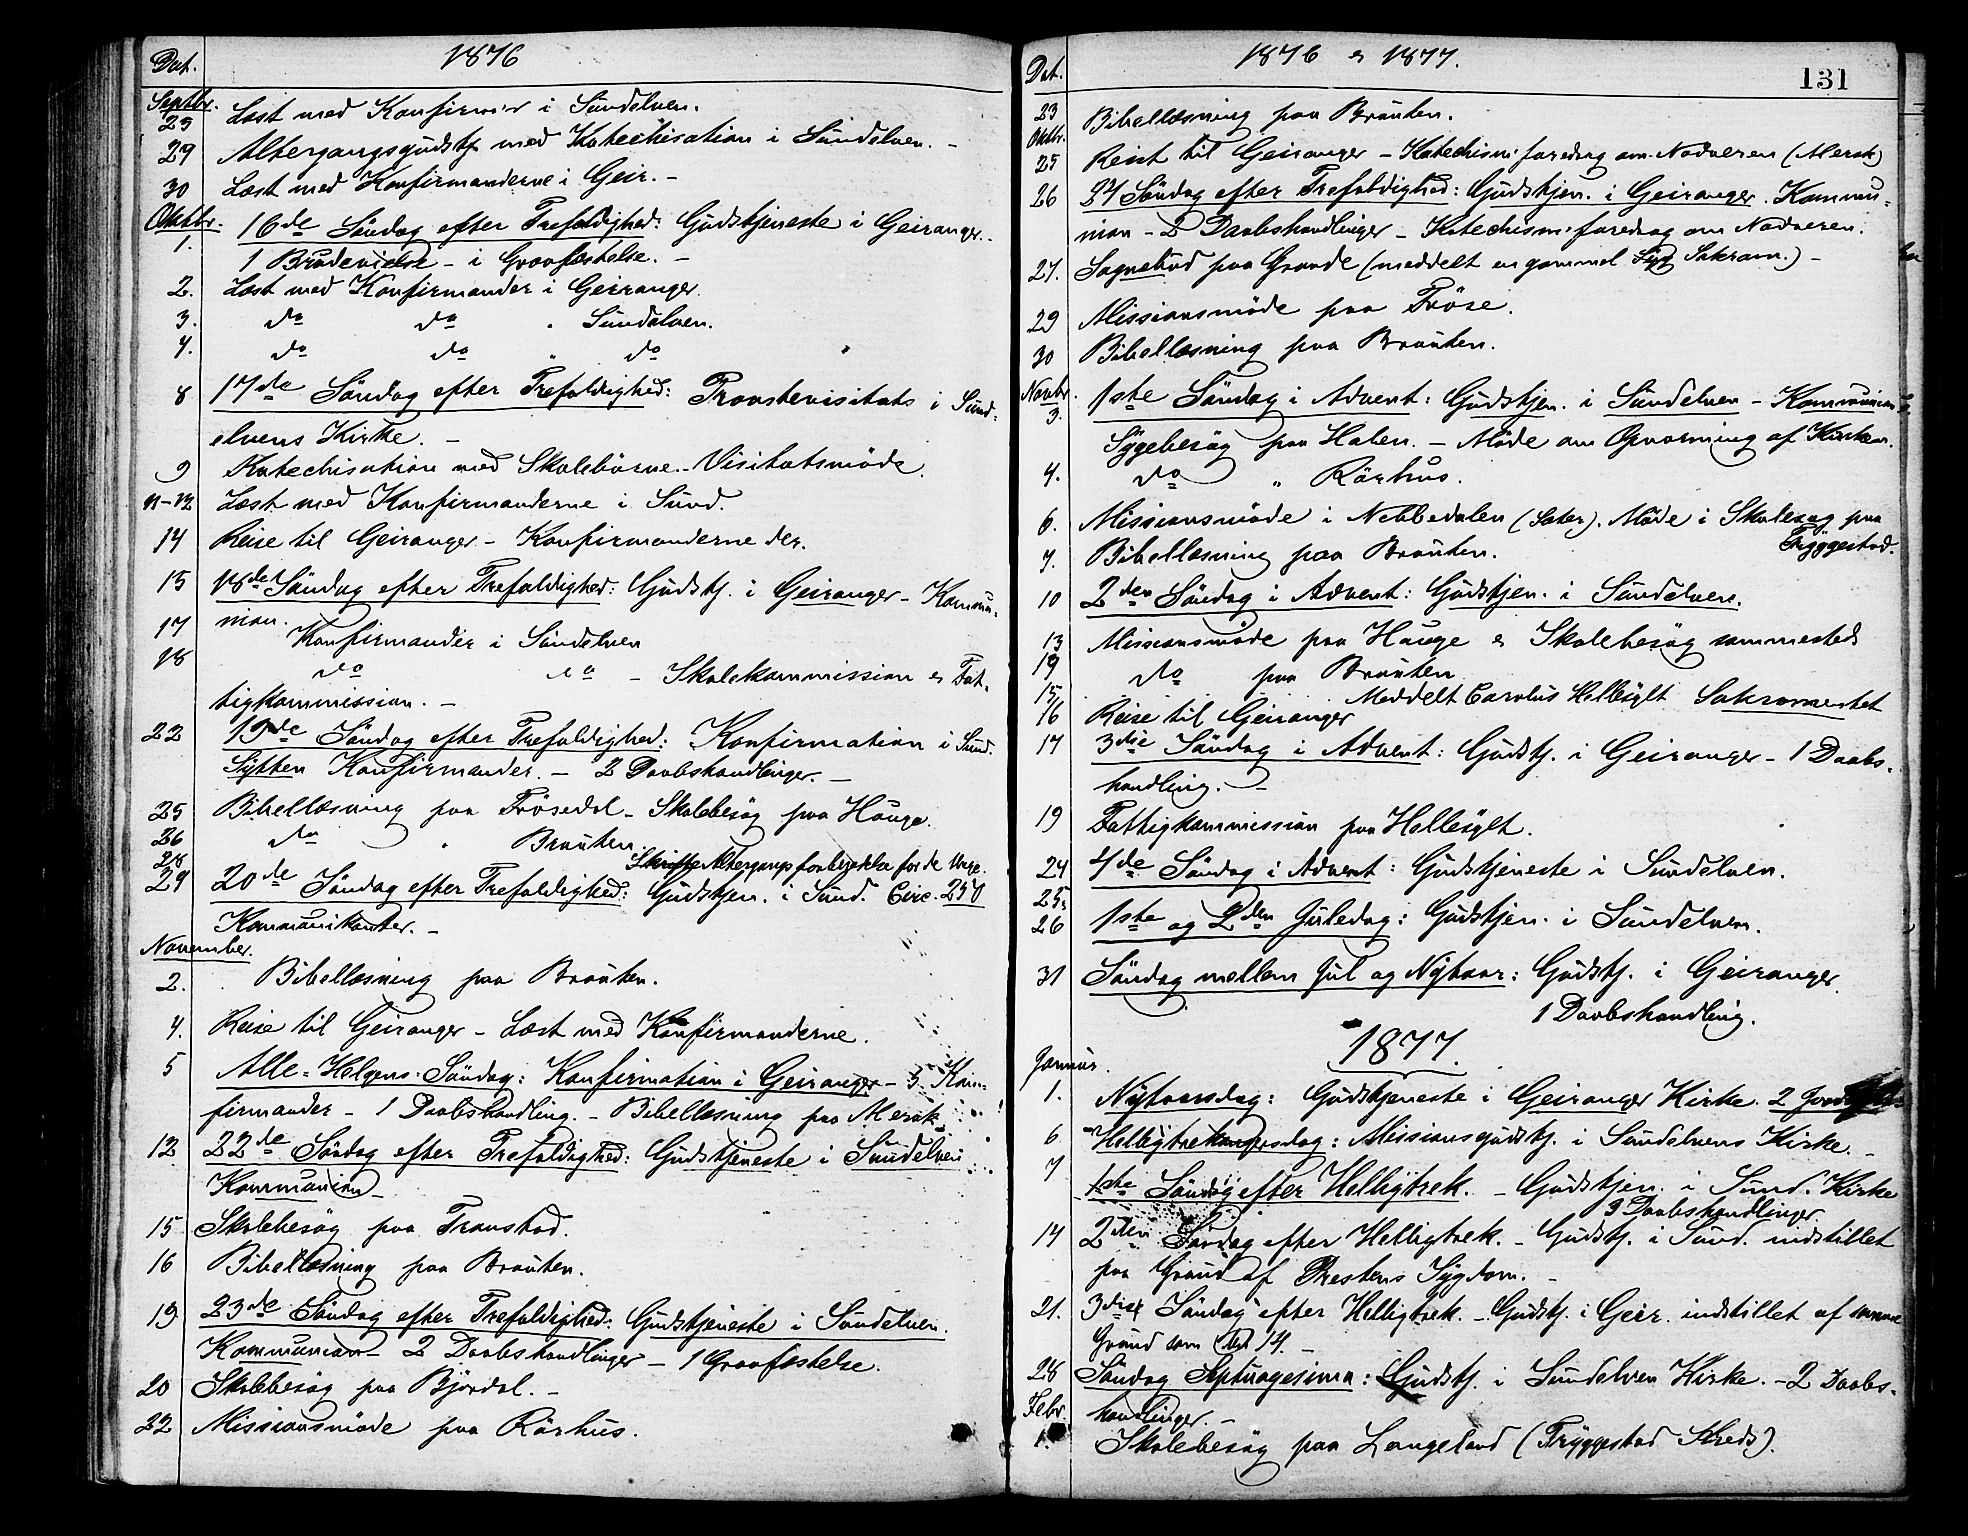 Dat.
1876
Septbr.
25 Læst med Konfirm. i Sundelven.
29 Altergangsgudstj. med Katechisation i Sundelven. –
30 Læst med Konfirmanderne i Geir. –
Oktbr.
1. 16de Söndag efter Trefoldighed: Gudstjeneste i Geiranger.
1 Brudevielse – 1 Gravfæstelse. –
2. Læst med Konfirmander i Geiranger.
3. do do " Sundelven.
4. do do " do "
8 17de Söndag efter Trefoldighed: Provstevisitats i Sund-
elvens Kirke. –
9 Katechisation med Skolebörne – Visitatsmöde.
11–12 Læst med Konfirmanderne i Sund.
14 Reise til Geiranger – Konfirmanderne der.
15 18de Söndag efter Trefoldighed: Gudstj. i Geiranger – Kommu-
nion.
17 Konfirmander i Sundelven
18 do do – Skolekommission & Fat-
tigkommission. –
22 19de Söndag efter Trefoldighed: Konfirmation i Sund.
Sytten Konfirmander. – 2 Daabshandlinger. –
25 Bibellæsning paa Frösedal – Skolebesög paa Hauge.
26 do " Brauten.
28 Altergangsforberedelse for de Unge.
29 20de Söndag efter Trefoldighed: Gudstjen. i Sund. Circ. 250
Kommunikanter. –
November.
2. Bibellæsning paa Brauten.
4. Reise til Geiranger – Læst med Konfirmanderne.
5 Alle-Helgens-Söndag: Konfirmation i Geiranger – 5 Kon-
firmander – 1 Daabshandling. – Bibellæsning paa Merak.
12 22de Söndag efter Trefoldighed: Gudstjeneste i Sundelven
Kommunion –
15 Skolebesög paa Tronstad.
16 Bibellæsning paa Brauten.
19 23de Söndag efter Trefoldighed: Gudstjeneste i Sundelven.
Kommunion – 2 Daabshandlinger – 1 Gravfæstelse.
20 Skolebesög paa Björdal. –
22 Missionsmöde paa Rörhus.
Dat.
1876 & 1877.
131
23 Bibellæsning paa Brauten.
Oktbr.
25 Reist til Geiranger – Katechism: foredrag om Nadveren (Merak)
26 24 Söndag efter Trefoldighed: Gudstjen. i Geiranger. Kommu-
nion – 2 Daabshandlinger – Katechism: foredrag om Nadveren.
27. Sognebud paa Grande (meddelt en gammel Syg Sakram.) –
29 Missionsmöde paa Fröse.
30 Bibellæsning paa Brauten.
Novbr.
3. 1ste Söndag i Advent: Gudstjen. i Sundelven – Kommunion
Sygebesög paa Holen. – Möde om Opvarmning af Kirken.
4. do " Rörhus.
6. Missionsmöde i Nebbedalen (Sæter). Möde i Skolesag paa
Tryggestad.
7. Bibellæsning paa Brauten.
10 2den Söndag i Advent: Gudstjen. i Sundelven.
13 Missionsmöde paa Hauge & Skolebesög sammesteds
19 do paa Brauten
15 Meddelt Carolus Hellesylt Sakramentet
16 Reise til Geiranger
17 3die Söndag i Advent: Gudstj. i Geiranger – 1 Daabs-
handling. –
19 Fattigkommission paa Hellesylt.
24 4de Söndag i Advent: Gudstjeneste i Sundelven.
25.
26 1ste og 2den Juledag: Gudstjen. i Sundelven.
31 Söndag mellem Jul og Nytaar: Gudstj. i Geiranger.
1 Daabshandling.
1877.
Januar.
1. Nytaarsdag: Gudstjeneste i Geiranger Kirke. 2
6 Helligtrekongersdag: Missionsgudstj. i Sundelvens Kirke. –
7 1ste Söndag efter Helligtrek. – Gudstjen. i Sund. Kirke
3 Daabshandlinger.
14 2den Söndag efter Helligtrek. – Gudstj. i Sund. indstillet
paa Grund af Prestens Sygdom. –
21. 3die Söndag efter Helligtrek. – Gudstj. i Geir. indstillet af samme
Grund som den 14. –
28 Söndag Septuagesima: Gudstj. i Sundelven Kirke. – 2 Daabs-
handlinger. –
Febr.
1. Skolebesög paa Langeland (Tryggestad Kreds).